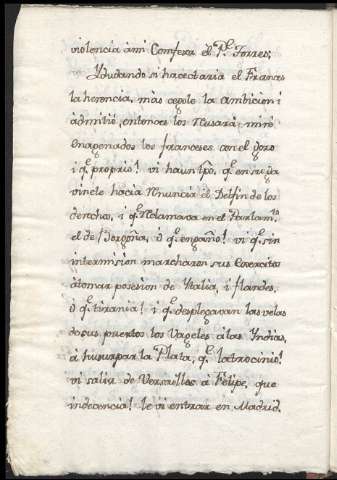 violencia ami Confesor el P.e Torres;
Ydudando si haceetaria el Frances
la herencia, mas cegole la ambicion i
àdmitiò, entonces los Nusarà, mirè
enagenados los franceses con el gozo
i q.e proprio! vi haun tpo, q.e en su ya
vincle hacia Rnuncia el Delfin de los
derechos, i q.e Rclamava en el Parlam.to
el de Borgoña, ò q.e engaño! vi q.e sin
intermision marcharon sus Exercitos
àtomar posesion de Ytalia, i flandes,
ò q.e tirania! i q.e desplegavan las velas
desus puertos los Vageles àlas Yndias,
à husurpar la Plata, q.e latrocinio!
vi salir de Versailles à Felipe, que
indecencia! le vi entrar en Madrid.